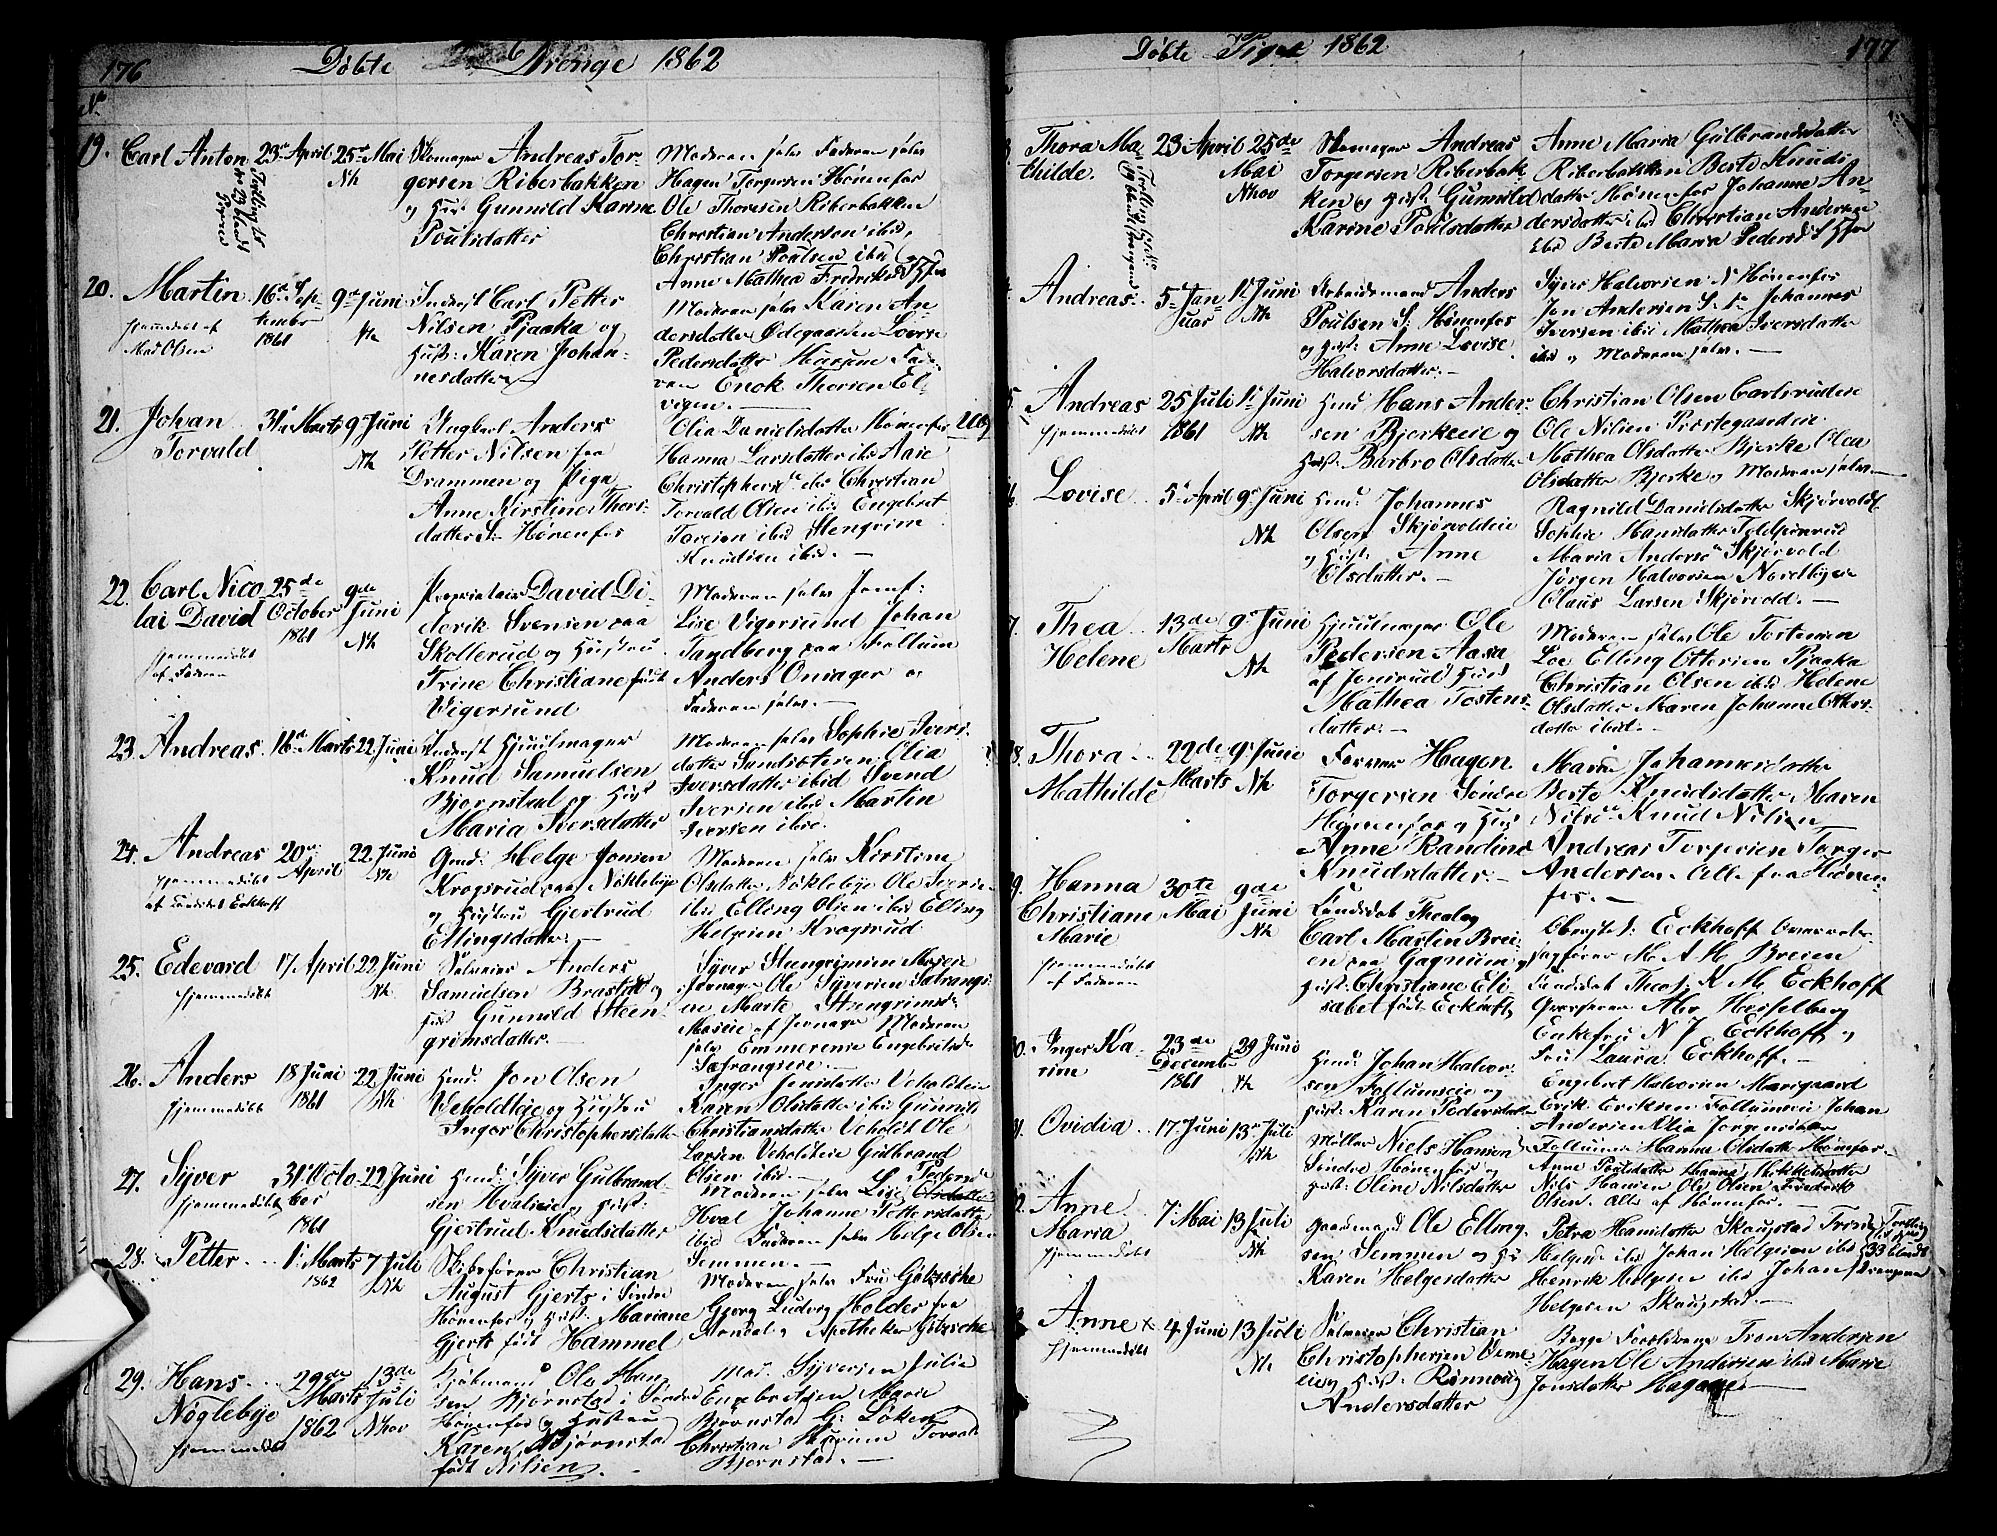 176
Döbte Drenge 1862
No
19.
Carl Anton
23 April
25de Mai
Nk
Skomager Andreas Tor-
gersen Riberbakken
og Hust Gunnild Karine
Poulsdatter
Moderen selv Faderen selv
Hagen Torgersen Hönenfos
Ole Thoresen Riberbakken
Christian Andersen ibid
Christian Poulsen ibid og
Anne Mathea Fredriksd
20.
Martin
hjemmedöbt af
Mad Olsen
16de Sep
tember
1861
9de Juni
Nk
Inderst Carl Petter
Nilsen Pjaaka og
Hust: Karen Johan-
nesdatter
Moderen selv Karen An
dersdatter Ödegaarden Lovise
Pedersdatter
Enok Thorsen El-
vigen.
21.
Johan
Torvald
31 Marts
9de Juni
Nk
Ungkarl Anders
Petter Nilsen fra
Drammen og Pige
Anne Kirstine Thors-
datter S: Hönenfos
Olia Danielsdatter Hönenfos
Hanna Larsdatter ibid Aase
Christophersd ibid Christian
Torvald Olsen ibid Engebret
Toresen ibid Stengrim
Knudsen ibid.
22.
Carl Nico
lai David
hjemmedöbt
af Faderen
25de
October
1861
9de
Juni
Nk
Proprietair David Di-
derik Svensen paa
Skollerud og Hustru
Trine Christiane födt
Vigersund
Moderen selv Jomf:
Lise Vigersund Johan
Tandberg paa Follum
Anders Onsager og
Faderen selv.
23.
Andreas
16de Marts
22 Juni
Inderst Hjuulmager
Knud Samuelsen
Bjornstad og Hust
Maria Iversdatter
Moderen selv Sophie Ivers-
datter Olia
Iversdatter ibid Svend
Iversen ibid Martin
Iversen ibid.
24.
Andreas
hjemmedöbt
af Candidat Eckhoff
20de
April
22 Juni
Nk
Gmd: Helge Jonsen
Krogsrud paa Nöklebye
og Hustru Gjertrud
Ellingsdatter.
Moderen selv Kirstine
Olsdatter Nöklebye Ole Iversen
ibid Elling Olsen ibid Elling
Helgesen Krogsrud
25.
Edevard
hjemmedöbt
17 April
22 Juni
Nk
Selveier Anders
Samuelsen Brastad og
Hust Gunnild Steen
grimsdatter.
Syver Stengrimsen Moseie
Jevnager Ole Syversen Sætrangs
eie Marte Stengrimsd
Moseie af Jevnager Moderen
selv Emmerense Engebretsd
Sætrangseie.
26.
Anders
hjemmedöbt
18 Juni
1861
22 Juni
Nk
Hmd: Jon Olsen
Veholdteie og Hustru
Inger Christophersdatter
Inger Jensdatter Veholdteie
Karen Olsdatter ibid Gunnild
Christiansdatter Veholdt Ole
Larsen Veholdteie Gulbrand
Olsen ibid.
27.
Syver
hjemmedöbt
31 Octo-
ber
1861
22 Juni
Hmd: Syver Gulbrand-
sen Hvalseie og Hust:
Gjertrud Knudsdatter
Moderen selv Lise Pedersd
Hval Johanne Pettersdatter
ibid Faderen selv Helge Olsen
Semmen.
28.
Petter
1 Marts
1862
7 Juli
Nk
Skibsförer Christian
August Gjerts i Söndre
Hönenfos og Hust: Mariane
Gjerts födt Hammel
Moderen selv Fru Götzsche
Georg Ludvig Holder fra
Arndal og Apotheker Götzsche
29.
Hans
Nöglebye
hjemmedöbt
29de
Marts
1862
13de
Juli
Nkov
Kjöbmand Ole Han
sen Bjørnstad i Söndre
Hönenfos og Hustru
Karen Bjørnstad
födt Nilsen.
Mad. Syversen Julia
Engebretsen Marie
Bjørnstad G: Löken
Christian Torvald
Bjørnstad.
Döbte Piger 1862
177
Thora Ma
thilde.
23 April
25de
Mai
Nkov
Skomager Andreas
Torgersen Riberbak
ken og Hust Gunnild
Karine Poulsdatter
Anne Maria Gulbrandsdatter
Riberbakken Berte Knuds
datter Hönenfos Johanne An-
dersdatter ibid Christian Andersen
ibid Berte Maria Pedersd S Hfos
Andreas
5 Jan
uar
1 Juni
Nk
Arbeidsmand Anders
Poulsen S: Hönenfos
og Hust: Anne Lovise
Halvorsdatter.
Syver Halvorsen N Hönenfos
Jon Andersen S. do Johannes
Iversen ibid Mathea Iversdatter
ibid og Moderen selv.
5.
Andreas
hjemmedöbt
25 Juli
1861
1 Juni
Nk
Hmd Hans Ander-
sen Bjerkeeie og
Hust. Barbro Olsdatter
Christian Olsen Carlsrudeie
Ole Nilsen Prestegaardeie
Mathea Olsdatter Bjerke Olea
Olsdatter Bjerke og Moderen selv
6.
Lovise
5 April
9 Juni
Nk
Hmd: Johannes
Olsen Skjørvoldeie
og Hust: Anne
Olsdatter.
Ragnild Danielsdatter Skjørvold
Sophie Hansdatter
Maria Andersd Skjørvold
Jörgen Halvorsen Nordbyeie
Olaus Larsen Skjørvold.
7.
Thea
Helene
13de
Marts
9 Juni
Nk
Hjuulmager Ole
Pedersen Aasa
af Jonsrud Hust
Mathea Tostens-
datter.
Moderen selv Ole Tostensen
Loe Elling Ottersen Pjaaka
Christian Olsen ibid Helene
Olsdatter Maren Johanne Otters-
datter ibid.
8.
Thora
Mathilde
22de
Marts
9 Juni
Nk
Farver Hagen
Torgersen Söndre
Hönenfos og Hust
Anne Randine
Knudsdatter.
Maria Johannesdatter
Berte Knudsdatter Maren
Nilsd Knud Nilsen
Andreas Torgersen Torger
Andersen Alle fra Hönen-
fos.
9.
Hanna
Christiane
Marie
hjemmedöbt
af Faderen
30te
Mai
9de
Juni
Nk
Candidat Theolog
Carl Martin Brei-
en paa Gagnum og
Hust: Christiane Eli-
sabet födt Eckhoff
Oberstl: Eckhoff Overrets-
sagförer M A H Breien
Candidat Theol. K M Eckhoff
Grosserer Abr Hesselberg
Enkefru N J Eckhoff og
Fru Laura Eckhoff.
30.
Inger Ka-
rine
23de
Decemb
1861
29 Juni
Nk
Hmd: Johan Halvor-
sen Follumseie og
Hust: Karen Pedersdatter
Engebret Halvorsen Marigaard
Erik Eriksen Follumseie Johan
Andersen Olia Jorgensdatter
Follum Hanna Olsdatter Hönefos.
31.
Ovidia
17 Juni
13 Juli
Nk
Müller Niels Hansen
Söndre Hönenfos og
Hust: Oline Nilsdatter
Anne Poulsdatter Hanna Mikkelsdatter
Nils Hansen Ole Olsen Fredrik
Olsen. Alle af Hönenfos.
Anne
Maria
hjemmedöbt
7 Mai
13 Juli
Nk
Gaardmand Ole Elling-
sen Semmen og Hu
Karen Helgesdatter
Petra Hansdatter Skaugstad Trond
Helgesen ibid Johan Helgesen ibid
Henrik Helgesen ibid Johan
Helgesen Skaugstad.
Anne x
hjemmedöbt
4 Juni
13 Juli
Nk
Selveier Christian
Christophersen
og Hust: Rönnaug
Andersdatter
Begge Forældrene Tron Andersen
Hagen Ole Andersen ibid Marie
Jonsdatter Hagene